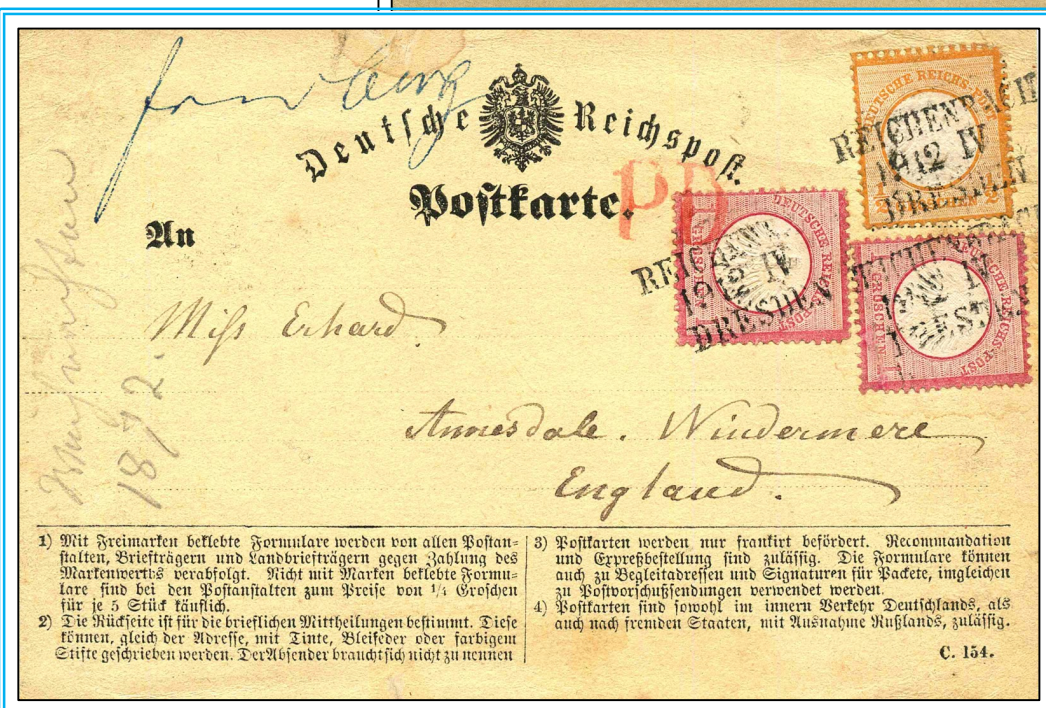 franco
Deutsche Reichspost.
Postkarte.
PD
An
Miss Erhard
Annesdale. Windermere
England.
1872.
DEUTSCHE REICHS-POST
REICHENBACH
12 IV
DRESDEN
DEUTSCHE REICHS-POST
1 GROSCHEN 1
REICHENB
12 IV
DRESDEN
DEUTSCHE REICHS-POST
1 GROSCHEN 1
12 IV
1) Mit Freimarken beklebte Formulare werden von allen Postan-
stalten, Briefträgern und Landbriefträgern gegen Zahlung des
Markenwerths verabfolgt. Nicht mit Marken beklebte Formu-
lare sind bei den Postanstalten zum Preise von 1/4 Groschen
für je 5 Stück käuflich.
2) Die Rückseite ist für die brieflichen Mittheilungen bestimmt. Diese
können, gleich der Adresse, mit Tinte, Bleifeder oder farbigem
Stifte geschrieben werden. Der Absender braucht sich nicht zu nennen
3) Postkarten werden nur frankirt befördert. Recommandation
und Expreßbestellung sind zulässig. Die Formulare können
auch zu Begleitadressen und Signaturen für Packete, imgleichen
zu Postvorschußsendungen verwendet werden.
4) Postkarten sind sowohl im innern Verkehr Deutschlands, als
auch nach fremden Staaten, mit Ausnahme Rußlands, zulässig.
C. 154.